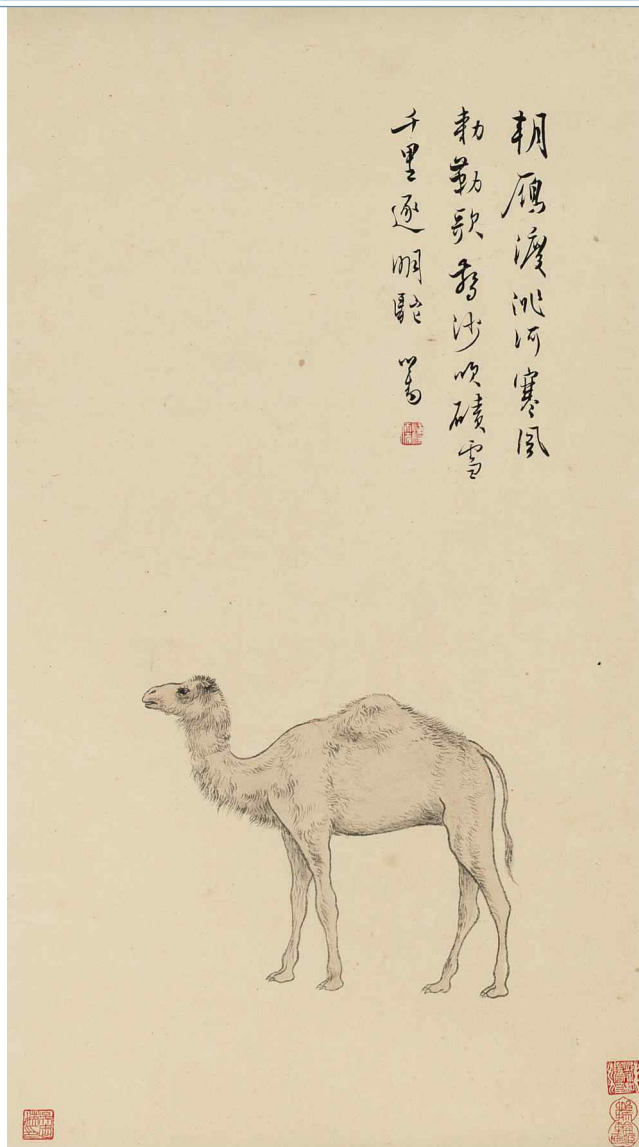 朝雁渡洮河寒風
勅勒歌驚沙吹磧雪
千里逐明駝 心畬